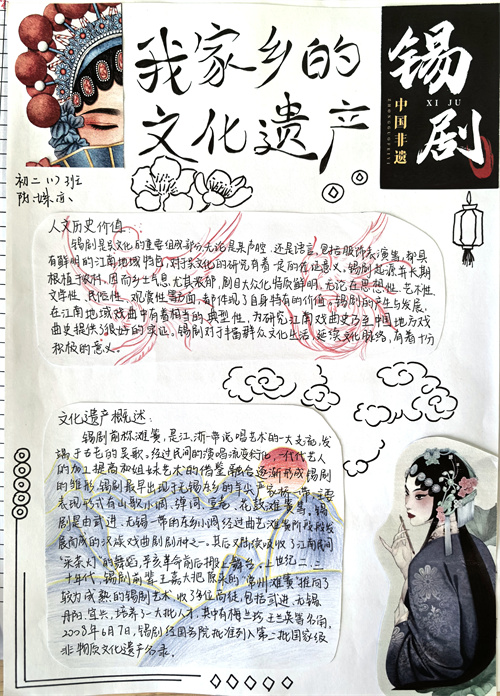 我家乡的
文化遗产
锡
XI JU
中国非遗
剧
初二(1)班
人文历史价值：
锡剧是吴文化的重要组成部分,无论是吴声腔,还是语言,包括服饰表演等,都具
有鲜明的江南地域特色,对于吴文化的研究有着一定的佐证意义。锡剧起源并长期
根植于农村,因而乡土气息尤其浓郁,剧目大众化特质鲜明,无论在思想性、艺术性、
文学性、民俗性、观赏性等方面,都体现了自身特有的价值。锡剧的产生与发展,
在江南地域戏曲中有着相当的典型性,为研究江南戏曲史乃至中国地方戏
曲史提供了很好的实证。锡剧对于丰富群众文化生活,延续文化脉络,有着十分
积极的意义。
文化遗产概述：
锡剧前称滩簧,是江、浙一带说唱艺术的一大支流,发
端于古老的吴歌。经过民间的演唱流变衍化,一代代艺人
的加工提高和姐妹艺术的借鉴融合逐渐形成锡剧
的雏形。锡剧最早出现于无锡东乡的羊尖严家桥一带,主要
表现形式有山歌小调、弹词、宣卷、花鼓滩簧等,锡
剧是由武进、无锡一带的东乡小调经过曲艺滩簧阶段发
展而成的汉族戏曲剧种之一。其后又陆续吸收了江南民间
“采茶灯”的舞蹈,辛亥革命前后搬上舞台。上世纪二、三
十年代,锡剧前辈王嘉大把原来的“常州滩簧”推向了
较为成熟的锡剧艺术,收了多位高徒,包括武进、无锡、
丹阳、宜兴,培养了一大批人才,其中有梅兰珍、王兰英等名角。
2008年6月7日,锡剧经国务院批准列入第二批国家级
非物质文化遗产名录。